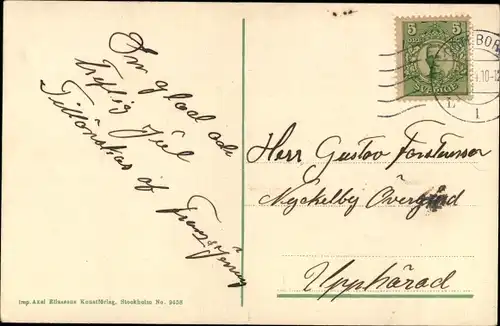 En glad och
treflig Jul
Tillönskas af
Herr Gustav
Nyckelby Övergård
Upphärad
5 5
SVERIGE
BOR
4.10-12
L
1
Imp. Axel Eliassons Konstförlag, Stockholm No. 9458